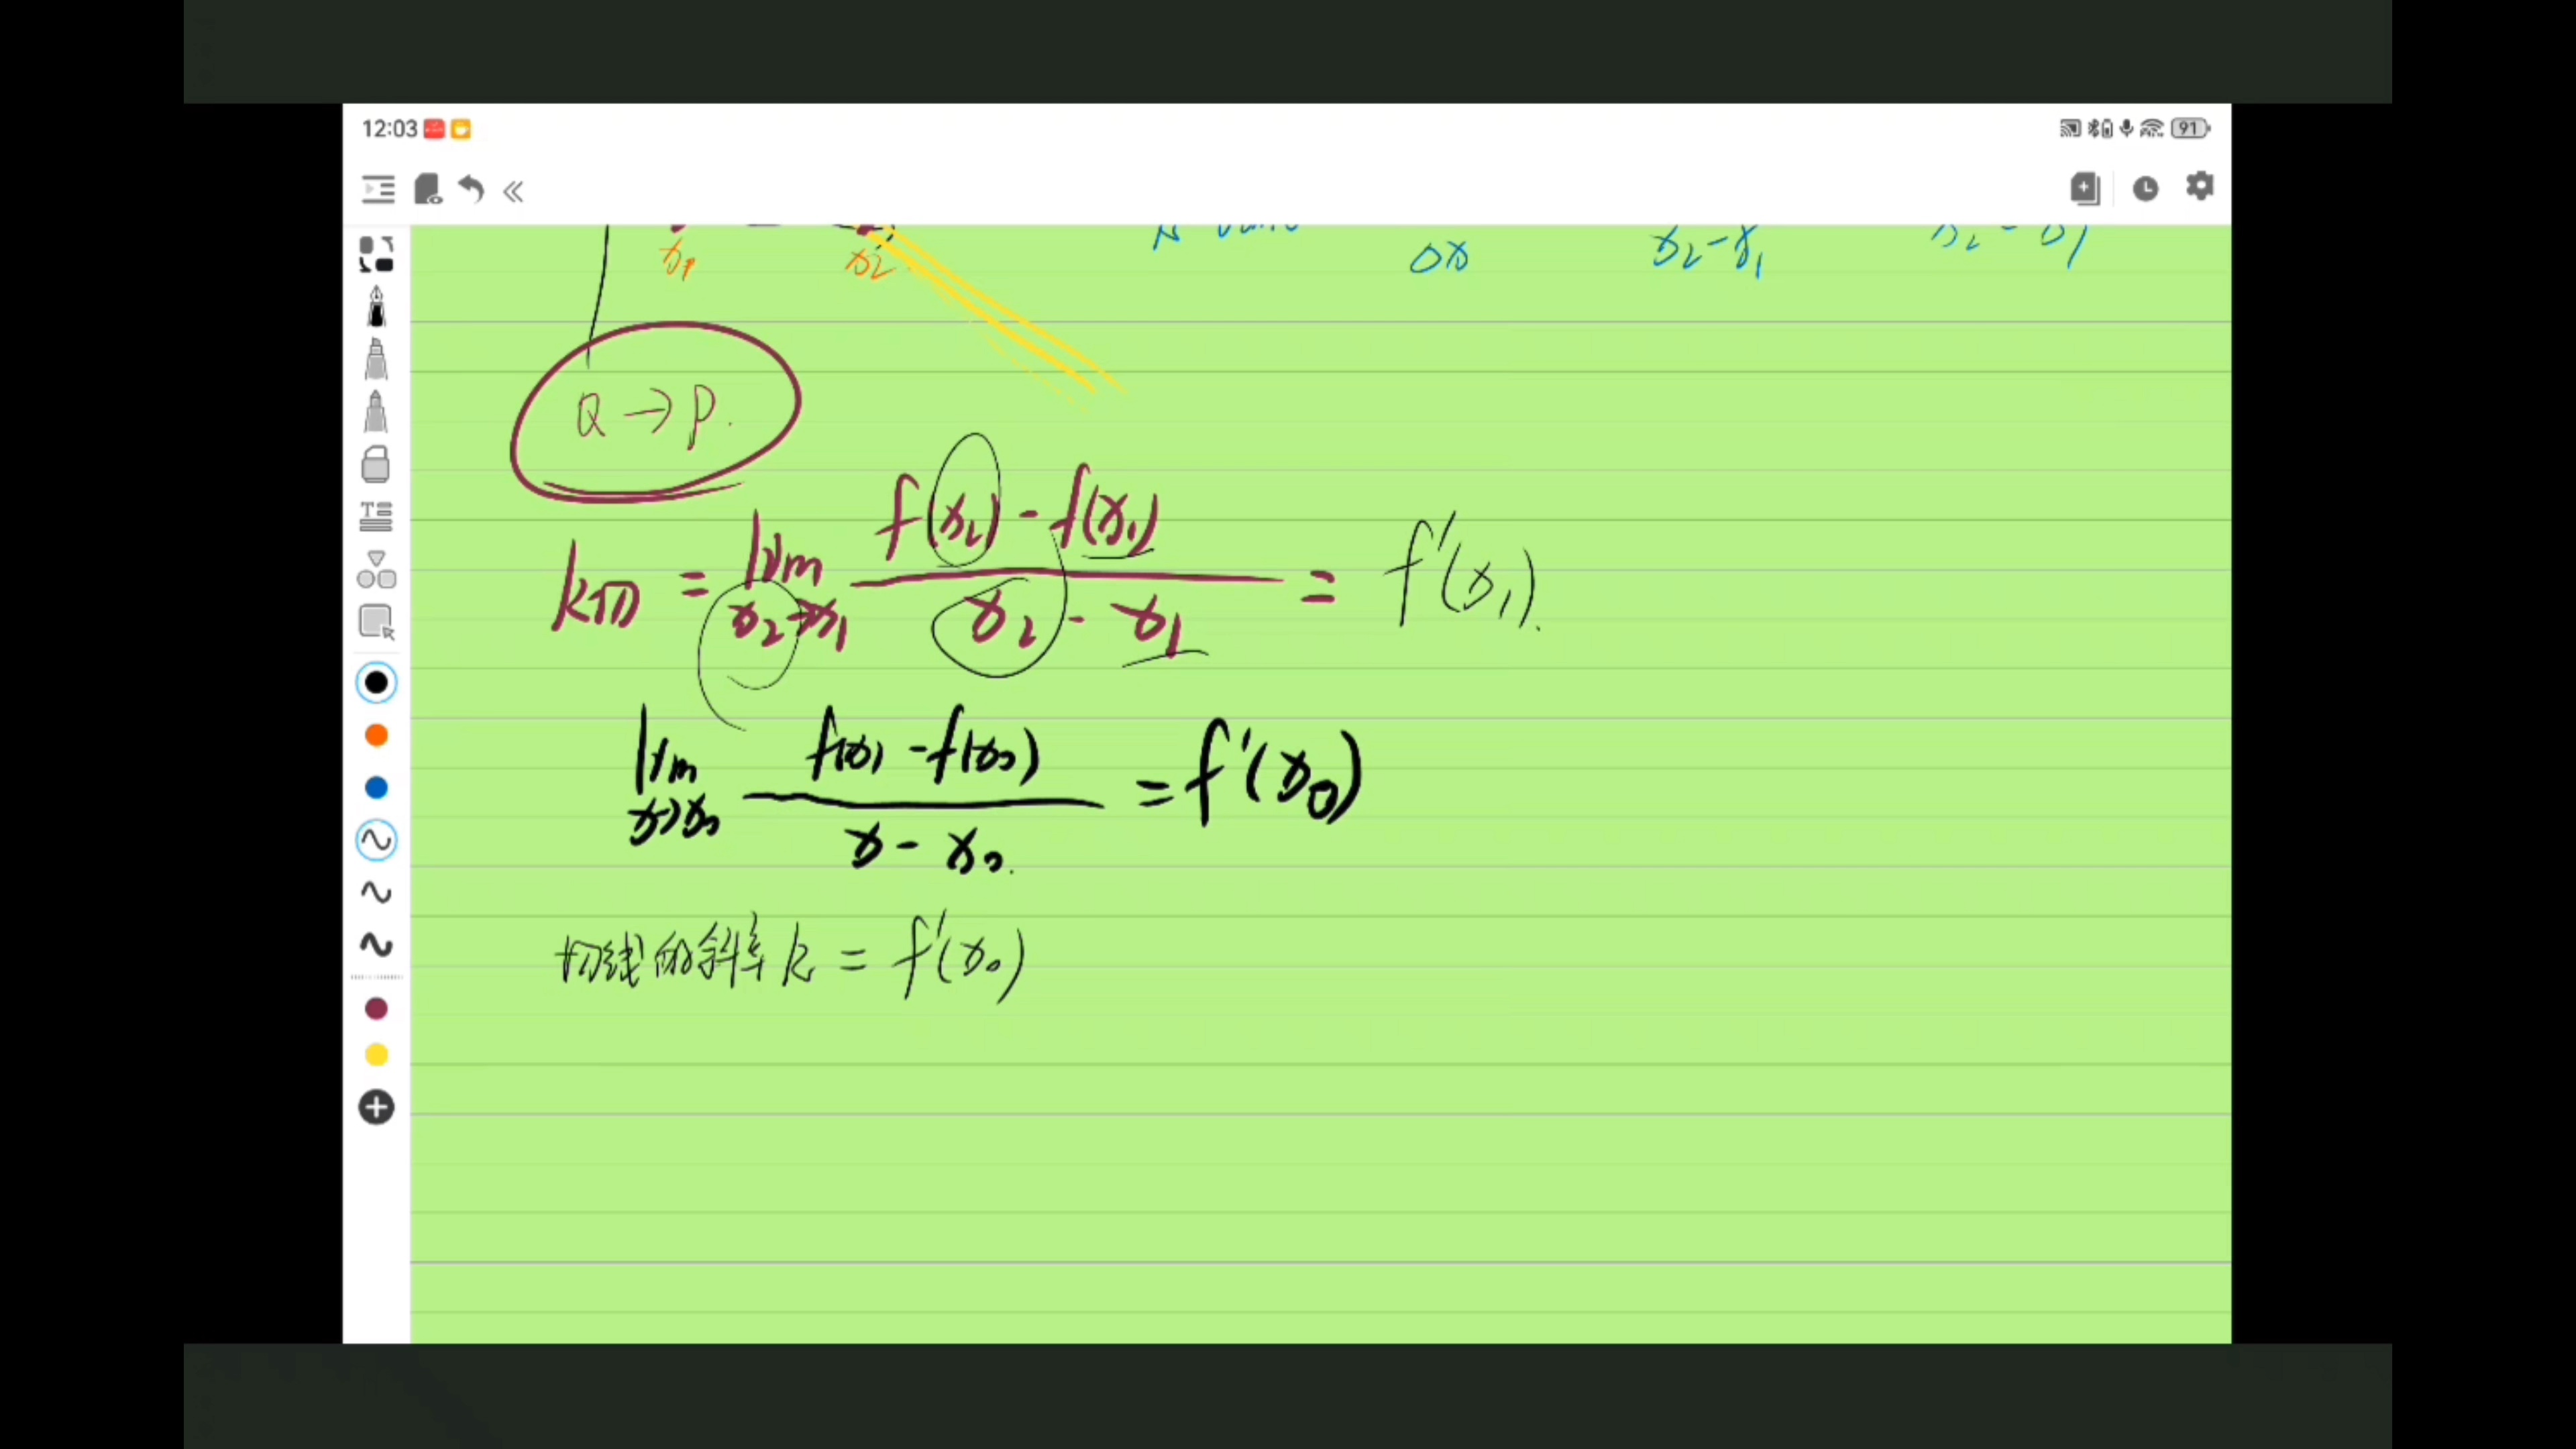 12:03 91
x₁ x₂ Δx x₂-x₁
Q → P.
k切 = lim x₂→x₁ (f(x₂) - f(x₁))/(x₂ - x₁) = f'(x₁).
lim x→x₀ (f(x) - f(x₀))/(x - x₀). = f'(x₀)
切线的斜率 k = f'(x₀)